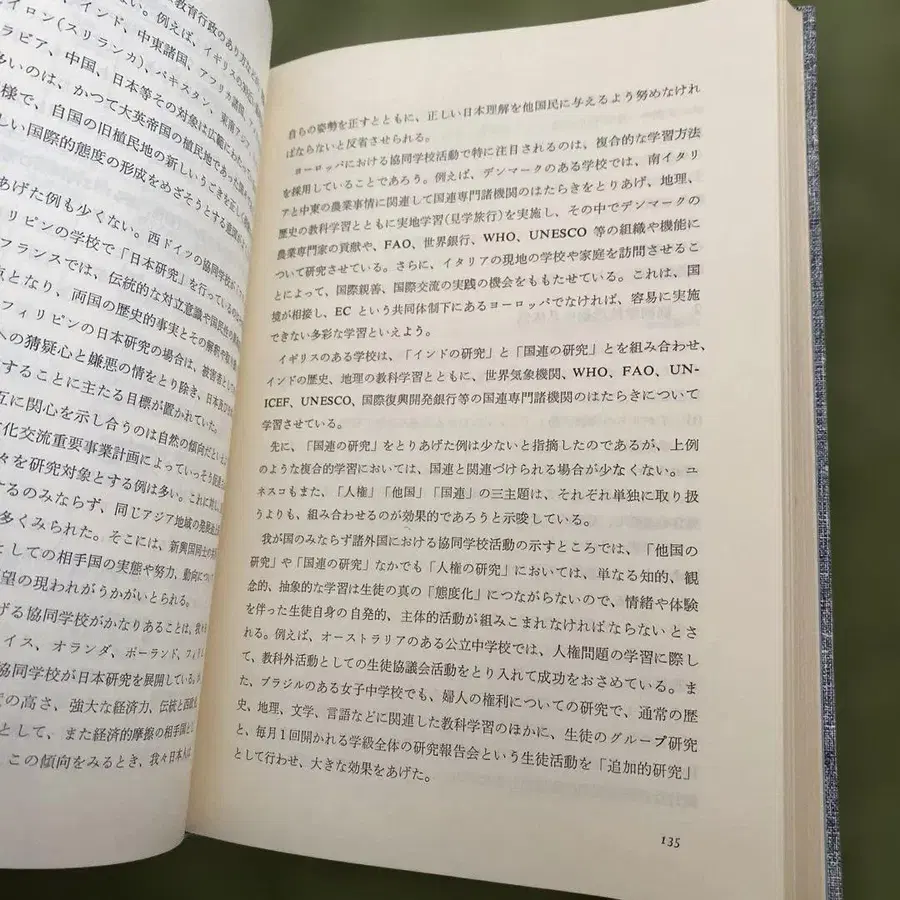 教育行政のあり方な
い。例えば、イギリスの
イロン(スリランカ)、パキスタン、東南ア
ンド、中東諸国、アフリカ諸国
ラビア、中国、日本等その対象は広範にわたって
多いのは、かつて大英帝国の植民地であった
様で、自国の旧植民地の新しいうごきを正し
しい国際的態度の形成をめざそうとする意図
あげた例も少くない。西ドイツの協同学校が
ィリピンの学校で「日本研究」を行っている
フランスでは、伝統的な対立意識や国民性の
点となり、両国の歴史的事実とその解釈や
フィリピンの日本研究の場合は、被害者として
への猜疑心と嫌悪の情をとり除き、日本
することに主たる目標が置かれていた。
互に関心を示し合うのは自然の傾向だ
化交流重要事業計画によっていっそう
々を研究対象とする例は多い。これに
するのみならず、同じアジア地域の発展
多くみられた。そこには、新興国同士の
としての相手国の実態や努力、動向につ
望の現われがうかがいとられる。
げる協同学校がかなりあることは、我々
イス、オランダ、ポーランド、フィ
協同学校が日本研究を展開している。
度の高さ、強大な経済力、伝統と西
として、また経済的摩擦の相手国と
、この傾向をみるとき、我々日本人は
自らの姿勢を正すとともに、正しい日本理解を他国民に与えるよう努めなけれ
ばならないと反省させられる。
ヨーロッパにおける協同学校活動で特に注目されるのは、複合的な学習方法
を採用していることであろう。例えば、デンマークのある学校では、南イタリ
アと中東の農業事情に関連して国連専門諸機関のはたらきをとりあげ、地理、
歴史の教科学習とともに実地学習(見学旅行)を実施し、その中でデンマークの
農業専門家の貢献や、FAO、世界銀行、WHO、UNESCO 等の組織や機能に
ついて研究させている。さらに、イタリアの現地の学校や家庭を訪問させるこ
とによって、国際親善、国際交流の実践の機会をもたせている。これは、国
境が相接し、EC という共同体制下にあるヨーロッパでなければ、容易に実施
できない多彩な学習といえよう。
イギリスのある学校は、「インドの研究」と「国連の研究」とを組み合わせ、
インドの歴史、地理の教科学習とともに、世界気象機関、WHO、FAO、UN-
ICEF、UNESCO、国際復興開発銀行等の国連専門諸機関のはたらきについて
学習させている。
先に、「国連の研究」をとりあげた例は少ないと指摘したのであるが、上例
のような複合的学習においては、国連と関連づけられる場合が少なくない。ユ
ネスコもまた、「人権」「他国」「国連」の三主題は、それぞれ単独に取り扱
うよりも、組み合わせるのが効果的であろうと示唆している。
我が国のみならず諸外国における協同学校活動の示すところでは、「他国の
研究」や「国連の研究」なかでも「人権の研究」においては、単なる知的、観
念的、抽象的な学習は生徒の真の「態度化」につながらないので、情緒や体験
を伴った生徒自身の自発的、主体的活動が組みこまれなければならないとさ
れる。例えば、オーストラリアのある公立中学校では、人権問題の学習に際し
て、教科外活動としての生徒協議会活動をとり入れて成功をおさめている。ま
た、ブラジルのある女子中学校でも、婦人の権利についての研究で、通常の歴
史、地理、文学、言語などに関連した教科学習のほかに、生徒のグループ研究
と、毎月1回開かれる学級全体の研究報告会という生徒活動を「追加的研究」
として行わせ、大きな効果をあげた。
135